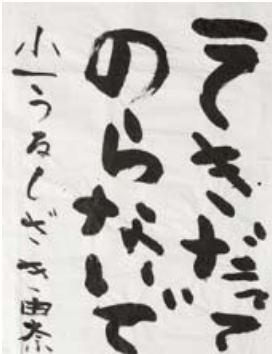 一てきだって
のらないで
小一うるしざき由奈